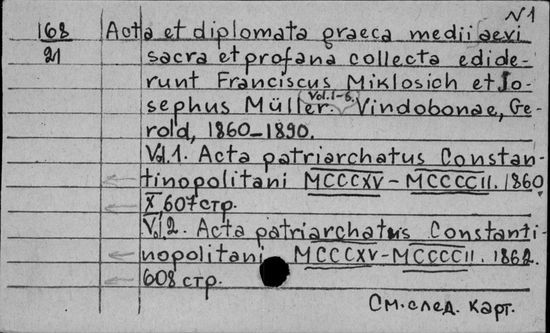 N1
168 Acta et diplomata graeca medii aevi
21 sacra et profana collecta edide-
runt Franciscus Miklosich et Jo-
sephus Müller. Vol. 1-6. Vindobonae, Ge-
rold, 1860-1890.
Vol. 1. Acta patriarchatus Constan-
tinopolitani MCCCXV-MCCCCII. 1860
X, 607 стр.
Vol. 2. Acta patriarchatus Constanti-
nopolitani MCCCXV-MCCCCII. 1862.
608 стр.
См. след. карт.